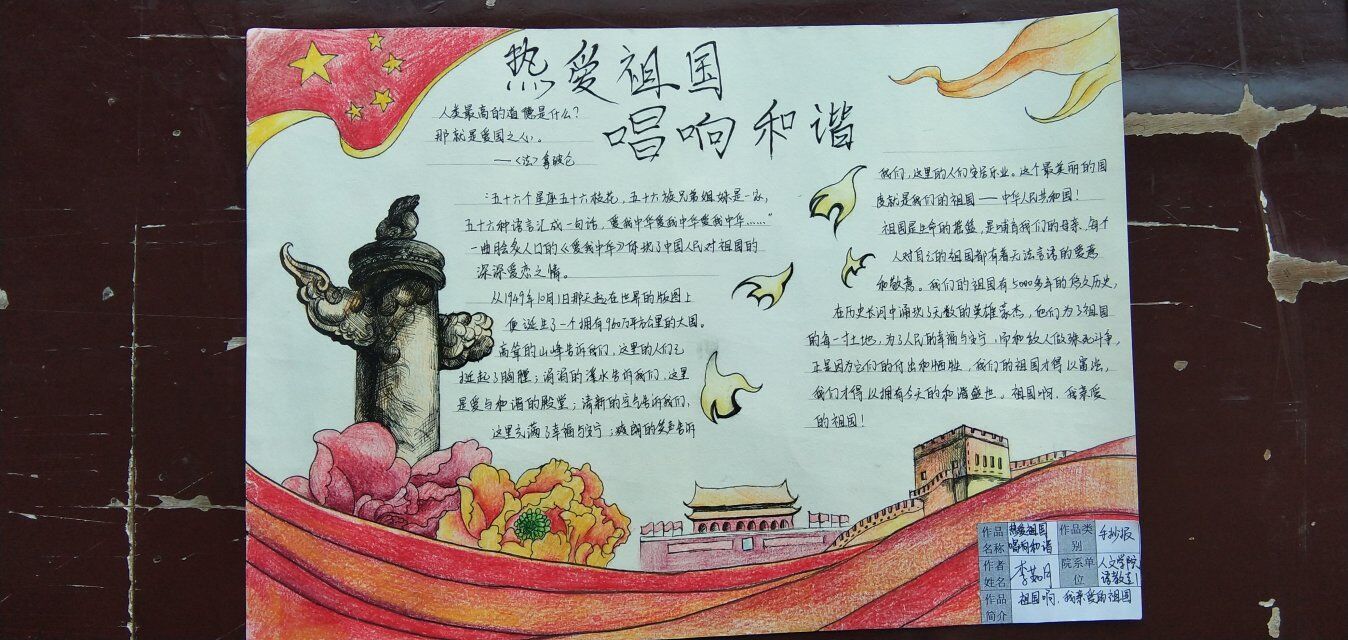 热爱祖国
唱响和谐
人类最高的道德是什么?
那就是爱国之心。
——〈法〉拿破仑
"五十六个星座五十六枝花,五十六族兄弟姐妹是一家,
五十六种语言汇成一句话,爱我中华爱我中华爱我中华……"
一曲脍炙人口的《爱我中华》体现了中国人民对祖国的
深深爱恋之情。
从1949年10月1日那天起在世界的版图上
便诞生了一个拥有960万平方公里的大国。
高耸的山峰告诉我们,这里的人们已
挺起了胸膛;涓涓的溪水告诉我们,这里
是爱与和谐的殿堂;清新的空气告诉我们,
这里充满了幸福与安宁;爽朗的笑声告诉
我们,这里的人们安居乐业。这个最美丽的国
度就是我们的祖国——中华人民共和国!
祖国是生命的摇篮,是哺育我们的母亲,每个
人对自己的祖国都有着无法言语的爱意
和敬意。我们的祖国有5000多年的悠久历史,
在历史长河中涌现了无数的英雄豪杰,他们为了祖国
的每一寸土地,为了人民的幸福与安宁,而和敌人做殊死斗争,
正是因为它们的付出和牺牲,我们的祖国才得以富强,
我们才得以拥有今天的和谐盛世。祖国啊,我亲爱
的祖国!
作品名称 热爱祖国唱响和谐 作品类别 手抄报
作者姓名 李茹月 院系单位 人文学院语教系1
作品简介 祖国啊,我亲爱的祖国